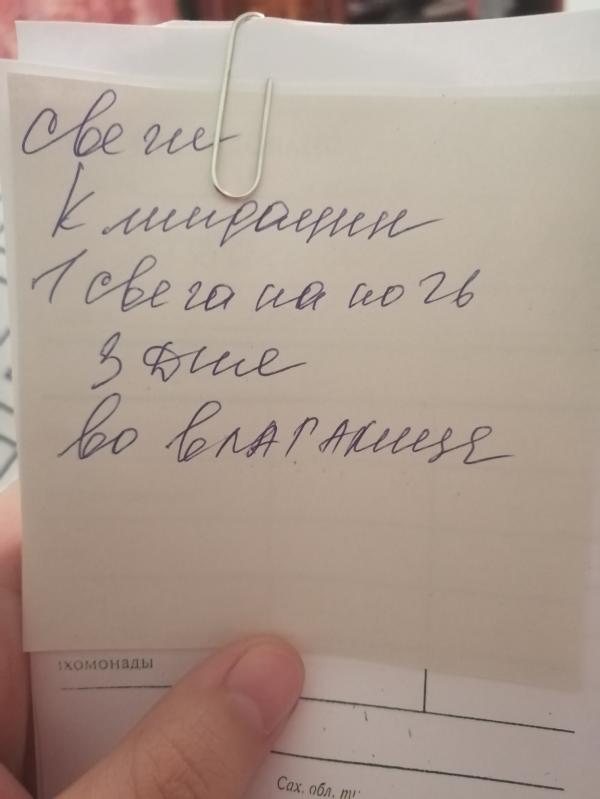 Свечи
Клиндацин
1 свеча на ночь
3 дня
во влагалище
ихомонады
Сах. обл. ти